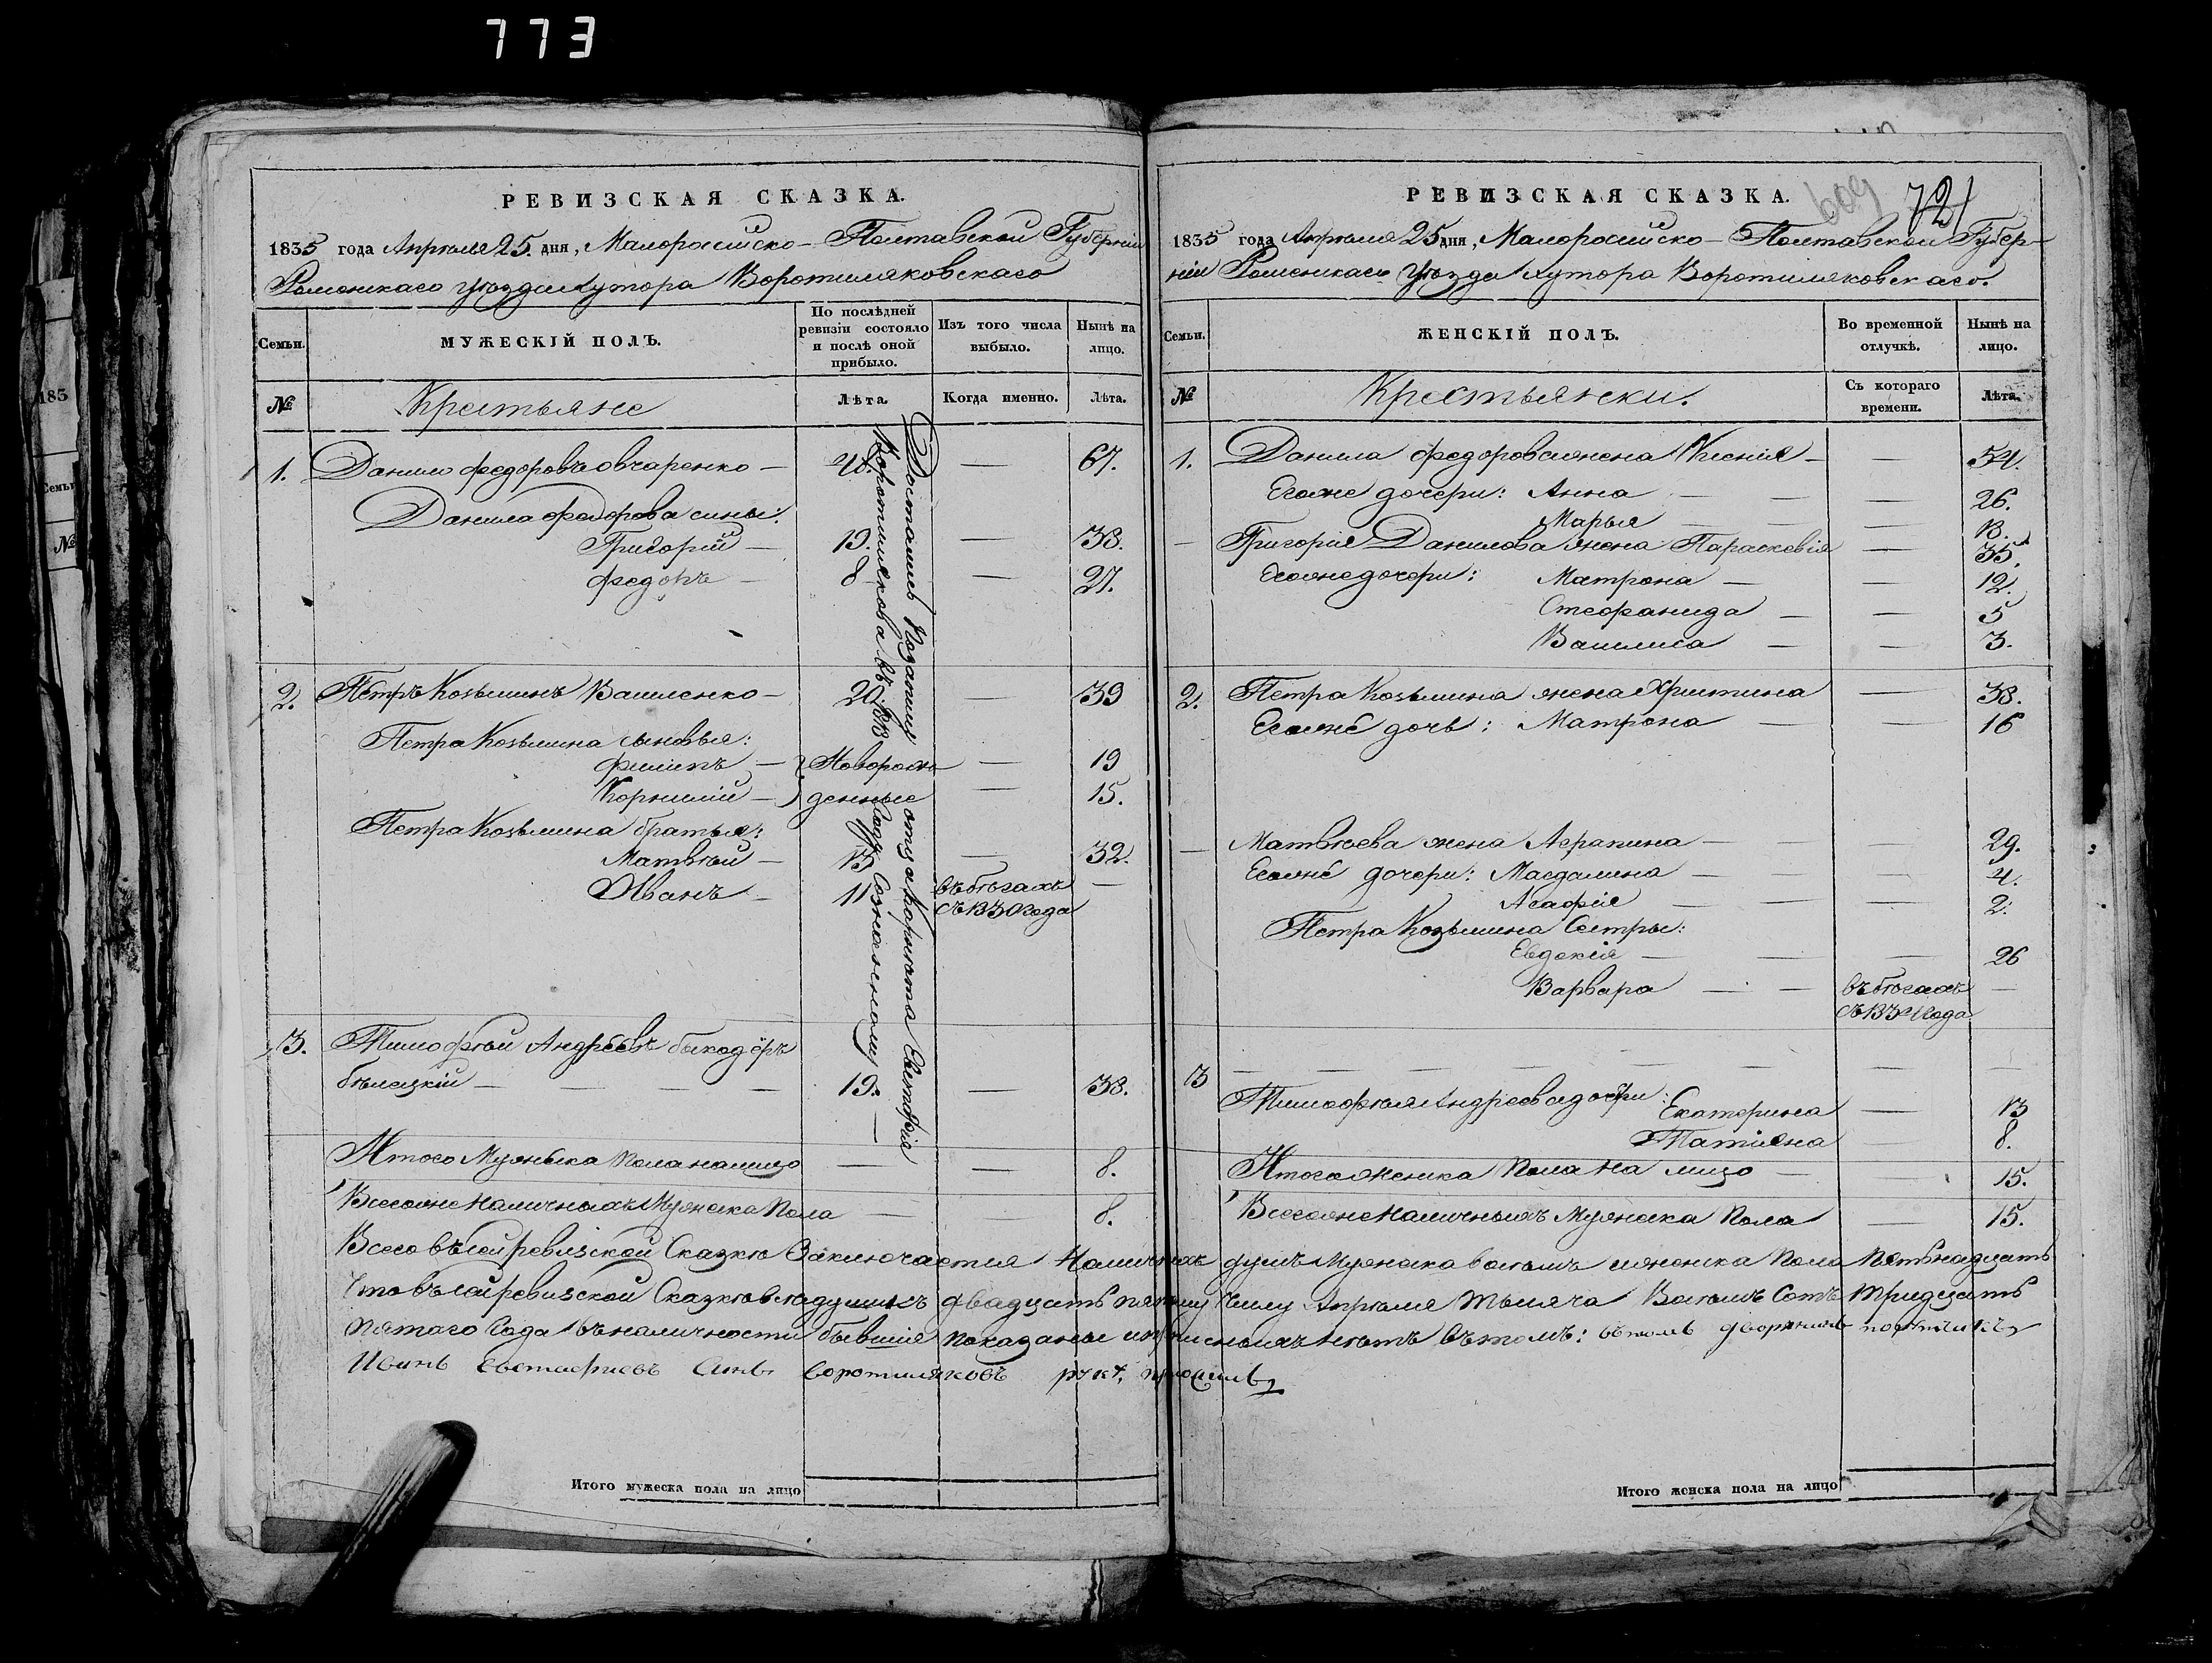 773
РЕВИЗСКАЯ СКАЗКА.
1835 года Апреля 25. дня, Малоросийско-Полтавской Губерніи
Роменскаго уѣзда хутора Воротиляковскаго
Семьи.
МУЖЕСКІЙ ПОЛЪ.
По послѣдней ревизіи состояло и послѣ оной прибыло.
Изъ того числа выбыло.
Нынѣ на лицо.
№
Крестьяне
Лѣта.
Когда именно.
Лѣта.
1. Данило Федоровъ Овчаренко — 48. — 67.
Данила Федорова сины:
Григорій — 19. — 38.
Федоръ — 8 — 27.
2. Петръ Козьминъ Василенко — 20. — 39
Петра Козьмина сыновья:
Филипъ — Новорож — 19
Корнилій — денные — 15.
Петра Козьмина братья:
Матвѣй — 13 — 32.
Иванъ — 11 въ бѣгахъ —
съ 1830 года
3. Тимофѣй Андреевъ
бѣлецкій — 19. — 38.
Достались Подпоручику
Воротилякова въ
отца Корнета Евстафія
году
Итого Мужеска Пола налицо — — 8.
Всегоже Наличныхъ Мужеска Пола — — 8.
РЕВИЗСКАЯ СКАЗКА.
609 721
1835 года Апреля 25 дня, Малоросийско-Полтавской Губер-
ніи Роменскаго Уѣзда хутора Воротиляковскаго.
Семьи.
ЖЕНСКІЙ ПОЛЪ.
Во временной отлучкѣ.
Нынѣ на лицо.
№
Крестьянски.
Съ котораго времени.
Лѣта.
1. Данила Федорова жена Ксенія — — 54.
Егоже дочери: Анна — — 26.
Марья — — 18.
— Григорія Данилова жена Параскевія — 35.
Егоже дочери: Матрона — — 12.
Стефанида — — 5
Василиса — — 3.
2. Петра Козьмина жена Христина — 38.
Егоже дочь: Матрона — — 16
— Матвѣева жена Аграпина — 29.
Егоже дочери: Магдалина — — 4.
Агафія — — 2.
Петра Козьмина Сестры:
Евдокія — — 26
Варвара — — въ бѣгахъ —
съ 1834 года
3 — — — —
Тимофѣя Андреева дочери: Екатерина — 13
Татіяна — 8.
Итого женска Пола на лицо — — 15.
Всегоже Наличныхъ Мужеска Пола — 15.
Всего въ сей ревизской Сказкѣ Заключается Наличныхъ душъ Мужеска восемь и женска Пола Пятьнадцать
Что въ сей ревизской Сказкѣ всѣ души къ двадцать пятому Числу Апреля тысяча Восемь Сотъ тридцать
пятаго Года въ наличности бывшія показаны и прописныхъ нѣтъ въ томъ: въ томъ дворянинъ
Иванъ Евстафиевъ Синъ Воротиляковъ руку приложилъ
Итого мужеска пола на лицо
Итого женска пола на лицо
185
Семьи
№